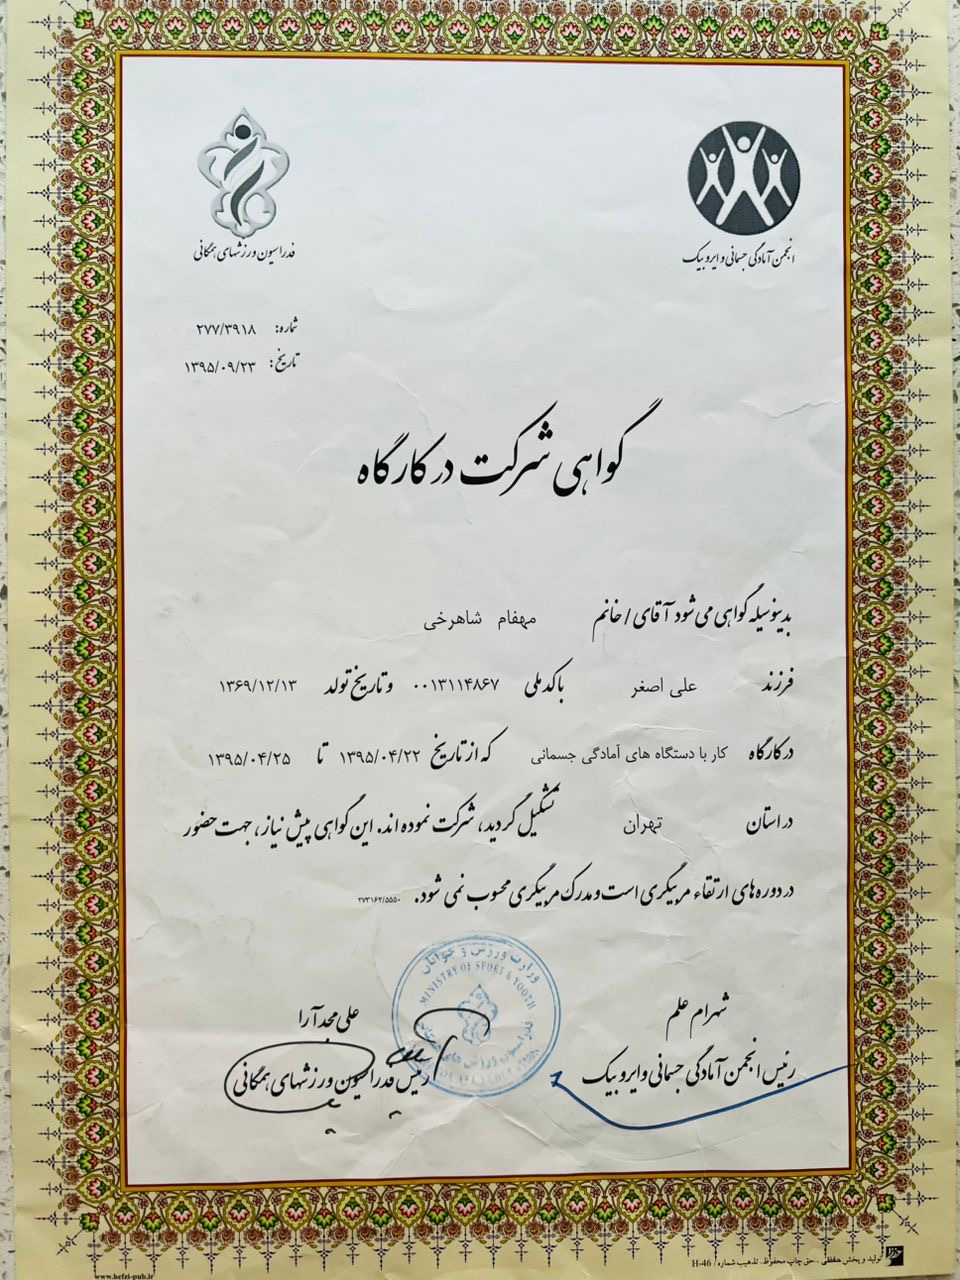 انجمن آمادگی جسمانی و ایروبیک
فدراسیون ورزشهای همگانی
شماره: ۲۷۷/۳۹۱۸
تاریخ: ۱۳۹۵/۰۹/۲۳
گواهی شرکت در کارگاه
بدینوسیله گواهی می شود آقای / خانم مهفام شاهرخی
فرزند علی اصغر با کد ملی ۰۰۱۳۱۱۴۸۶۷ و تاریخ تولد ۱۳۶۹/۱۲/۱۳
در کارگاه کار با دستگاه های آمادگی جسمانی که از تاریخ ۱۳۹۵/۰۴/۲۲ تا ۱۳۹۵/۰۴/۲۵
در استان تهران تشکیل گردید، شرکت نموده اند. این گواهی پیش نیاز، جهت حضور
در دوره های ارتقاء مربیگری است و مدرک مربیگری محسوب نمی شود. ۲۷۳۱۶۲/۵۵۵۰
وزارت ورزش و جوانان
MINISTRY OF SPORT & YOUTH
فدراسیون ورزش های همگانی
شهرام علم
رئیس انجمن آمادگی جسمانی و ایروبیک
علی مجدآرا
رئیس فدراسیون ورزشهای همگانی
تولید و پخش حفظی ، حق چاپ محفوظ. تذهیب شماره / H-46
www.hefzi-pub.ir